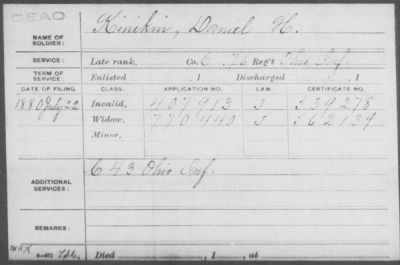 DEAD
NAME OF SOLDIER: Kinikin, Daniel H.
SERVICE: Late rank, Co. C 76 Reg't Ohio Inf.
TERM OF SERVICE: Enlisted , 1 Discharged , 1
DATE OF FILING. CLASS. APPLICATION NO. LAW CERTIFICATE NO.
1880 July 22 Invalid, 407,913 J 539,278
Widow, 770,440 J 562,139
Minor,
ADDITIONAL SERVICES: C 43 Ohio Inf.
REMARKS:
Died , 1 , at